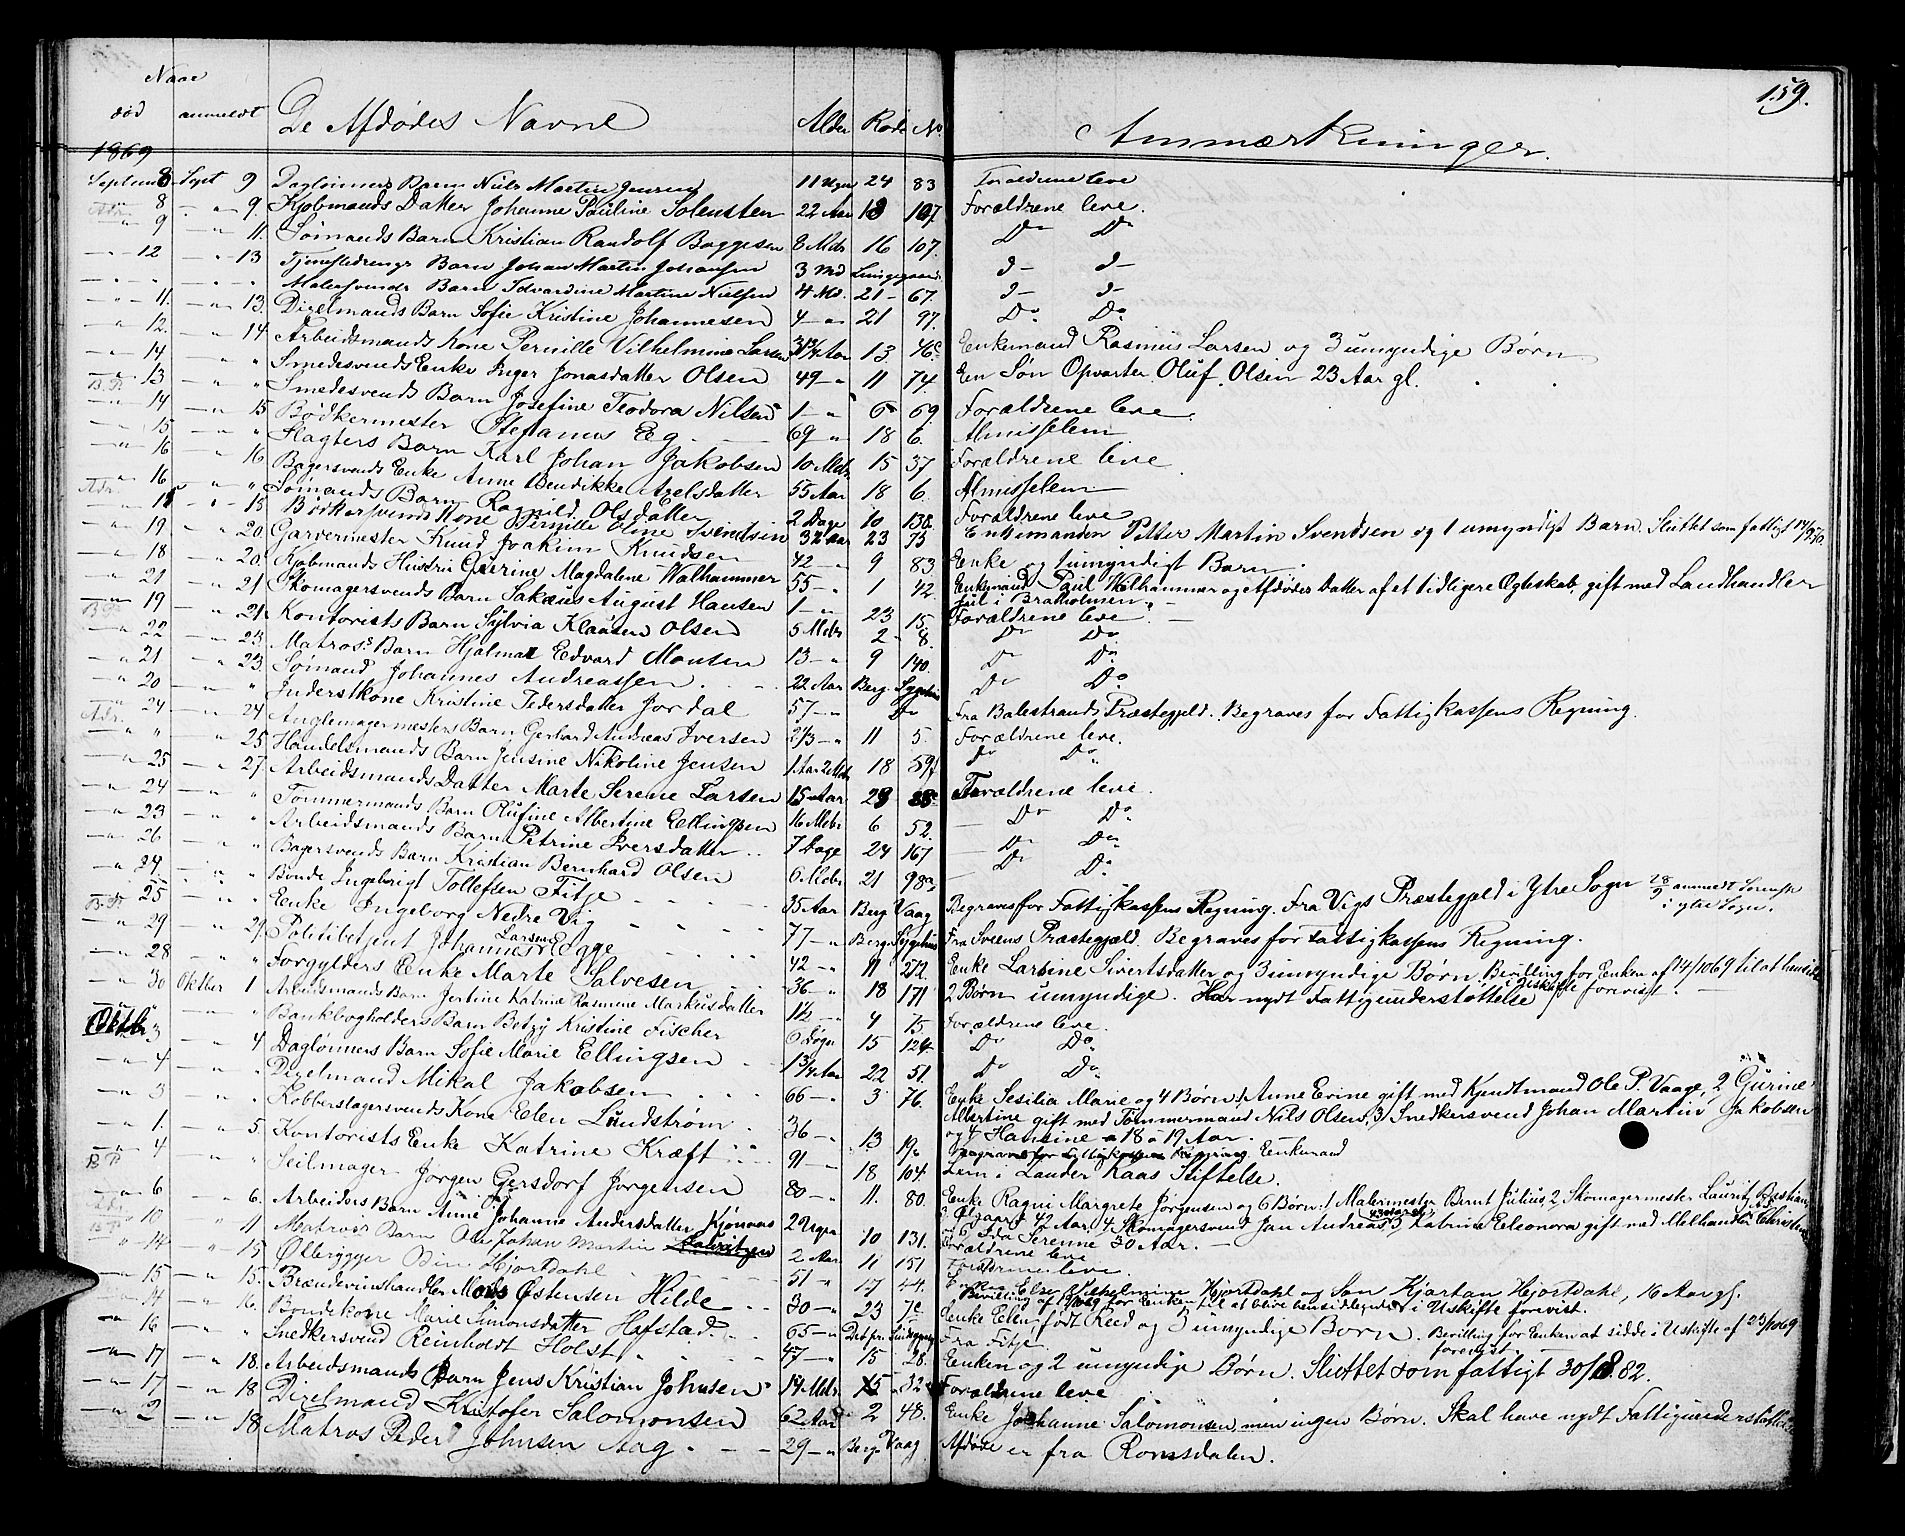 159.
Naar
død anmeldt De Afdødes Navne Alder Rode No. Anmærkninger.
1869
Septemb 8 Sept 9 Daglønners Barn Niels Martin Jensen 11 Uger 24 83 Forældrene leve
8 9. Kjøbmands Datter Johanne Pauline Solensten 22 Aar 18 107 Forældrene leve.
9 11. Sømands Barn Kristian Randolf Baggesen 8 Mdr 16 107. Do Do
12 13 Barn Johan Martin Johansen 3 Md d- d-
Malersvends Barn Edvardine Martine Nielsen 4 Md. 21 67. d- d-
11. 13. Dixelmands Barn Sofie Kristine Johannesen 4 21 97. Do Do
12. 14 Arbeidsmands Kone Pernille Vilhelmine Larsen Aar 13 46c Enkemand Rasmus Larsen og 3 umyndige Børn
14 " Smedesvends Enke Inger Jonasdatter Olsen 49 11 74 En Søn Opvarter Oluf Olsen 23 Aar gl.
B.P. 13 " Smedesvends Barn Josefine Teodora Nilsen 1 6 69. Forældrene leve.
14 15 Bødkermester Stefanus Eg. 69 18 6. Almisselem
15 " Slagters Barn Karl Johan Jakobsen 10 Mdr 15 37 Forældrene leve.
16 16 Bagersvends Enke Anne Bendikke Axelsdatter 55 Aar 18 6. Almisselem
Adr. 16 " Sømands Barn Ragnild Olsdatter 2 Dage 10 Forældrene leve
15 Bødkersvends Kone Pernille Oline Svendsen 32 Aar 23 Enkemanden Petter Martin Svendsen og 1 umyndigt Barn. Sluttet som fattigt
19. 20. Garvermester Knud Joakim Knudsen 42 9 83 Enke og 1 umyndigt Barn.
18 20. Kjøbmands Hustru Gurine Magdalene Walhammer 55 1 42. Enkemand Paul Walhammer og Afdødes Datter af et tidligere Egteskab, gift med Landhandler
i Bratholmen.
21 21 Skomagersvends Barn Sakæus August Hansen 1 23 15. Forældrene leve.
B.P. 19 21. Kontorists Barn Sylvia Klausen Olsen 5 Mdr 2 8. Do Do
22 23. Matros' Barn Hjalmar Edvard Monsen 13 9 140. Do Do
21 23. Sømand Johannes Andreassen 22 Aar Berg. Sygehus Do Do
20 " Inderstkone Kristine Pedersdatter Jordal 57 Do Fra Balestrands Præstegjeld. Begraves for Fattigkassens Regning.
Adr. 24 24 Barn Gerhard Andreas Iversen 2⅓ 11 5. Forældrene leve.
" 25 Handelsmands Barn Jensine Nikoline Jensen 1 Aar 2 Mdr 18 59 Do Do
25 27. Arbeidsmands Datter Marte Serene Larsen 15 Aar 23 Forældrene leve.
24 " Tømmermands Barn Olufine Albertine Ellingsen 16 Mdr 6 52. Do Do
23 " Arbeidsmands Barn Petrine Iversdatter 7 Dage 24 167 Do Do
26 " Bagersvends Barn Kristian Bernhard Olsen 6 Mdr 21 98a Do Do
24 " Bonde Ingebrigt Tollefsen Fitje 35 Aar Berg Vaag Begraves for Fattigkassens Regning. Fra Vigs Præstegjeld i Ytre Sogn 28/9 anmeldt
i ytre Sogn.
B.P. 25 " Enke Ingeborg Nedre Vig 77 Berg. Sygehus Fra Sveens Præstegjæld. Begraves for Fattigkassens Regning.
29 29. Politibetjent Johannes Larsen 42 11 272. Enke Larsine Sivertsdatter og 3 umyndige Børn. Bevilling for Enken af 14/10 69 til at hensidde
i Uskifte forevist.
28 " Forgylders Enke Marte Salvesen 36 18 171 2 Børn umyndige. Har nydt Fattigunderstøttelse
30 Oktber 1 Arbeidsmands Barn Jertine Katrine Rasmine Markusdatter 1½ 4 75 Forældrene leve.
" " Bankbogholders Barn Betzy Kristine Fischer 6 Døgn 15 124 Do Do
Oktbr. 3 4 Daglønners Barn Sofie Marie Ellingsen 1¾ Aar 22 51. Do Do
4 " Dixelmand Mikal Jakobsen 66 3 76. Enke Sesilia Marie og 4 Børn: 1 Anne Erine gift med Kjendtmand Ole P. Vaage, 2 Gurine
Martine gift med Tømmermand Nils Olsen, 3 Snedkersvend Johan Martin Jakobsen
og 4 Hansine 18 à 19 Aar.
3 " Kobberslagersvends Kone Elen Lundstrøm 36 13 19 Begraves for Fattigkassens Regning Enkemand
1. 5. Kontorists Enke Katrine Kræft 91 18 104. Lem i Lauder Kaas Stiftelse.
B P 4 " Seilmager Jørgen Gersdorf Jørgensen 80 11. 80. Enke Ragni Margrete Jørgensen og 6 Børn: 1 Malermester Bernt Julius, 2 Skomagermester Lauritz Bastian
3 42 Aar, 4 Skomagersvend Jan Andreas 5 Katrine Eleonora gift med Melhandler
6 Ida Serenne 30 Aar.
6 6. Arbeiders Barn Anne Johanne Andersdatter Kjønaas 2 Uger 10 131. Forældrene leve
B P 10 11 Matros Barn Ole Johan Martin 2 Aar 11 151 Forældrene leve.
14 15 Ølbrygger Odin Hjortdahl 51 17 44. Enke Else Vilhelmine Hjortdahl og Søn Kjartan Hjortdahl, 16 Aar gl.
Bevilling for Enken til at blive hensiddende i Uskifte forevist.
15 15. Brændeviinshandler Mons Østensen Hilde 30 23 7c Enke Ellen født Reed og 3 umyndige Børn. Bevilling for Enken at sidde i Uskifte af 23/10 69
forevist.
14 16. Bondekone Marie Simonsdatter Hafstad 65 Fra Fitje.
16 " Snedkersvend Reinholdt Holst 47 15 28. Enken og 2 umyndige Børn. Sluttet som fattigt 82.
17 18. Arbeidsmands Barn Jens Kristian Johnsen 14 Mdr 15 32 Forældrene leve
17 18 Dixelmand Kristofer Salomonsen 62 Aar 2 48. Enke Johanne Salomonsen, men ingen Børn. Skal have nydt Fattigunderstøttelse
2 18. Matros Peder Johnsen Aag. 29 Berg. Vaag Afdøde er fra Romsdalen.